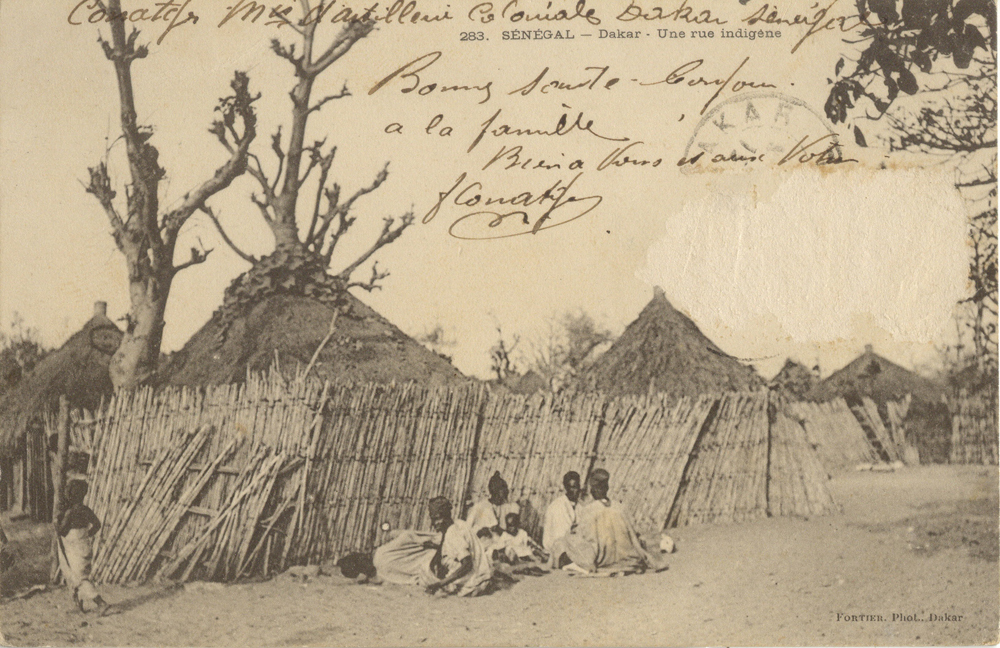 Conatif Mle d'artillerie Coloniale Dakar Sénégal
283. SÉNÉGAL — Dakar - Une rue indigène
Bonne sante - Bonjour
a la famille
Bien a Vous et aux Votre
Conatif
KAR
FORTIER. Phot.. Dakar